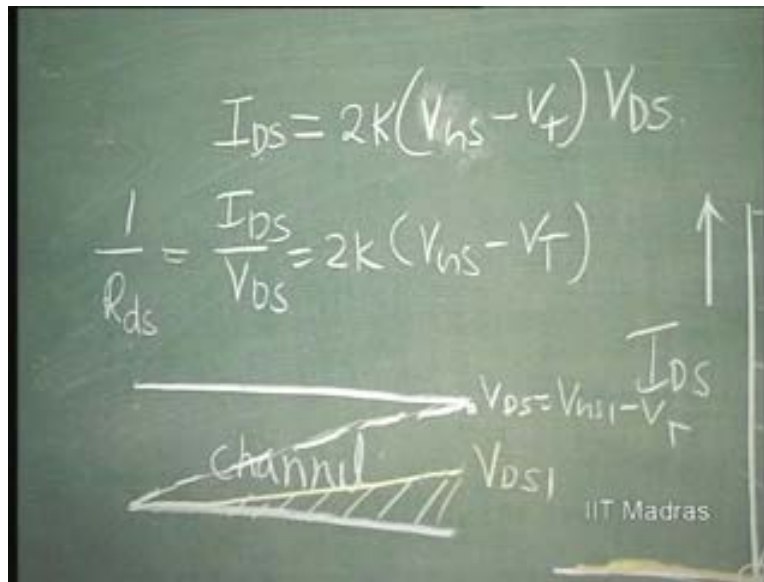 I_DS = 2K(V_GS - V_T) V_DS
1/R_ds = I_DS/V_DS = 2K(V_GS - V_T)
I_DS
V_DS = V_GS1 - V_T
channel
V_DS1
IIT Madras